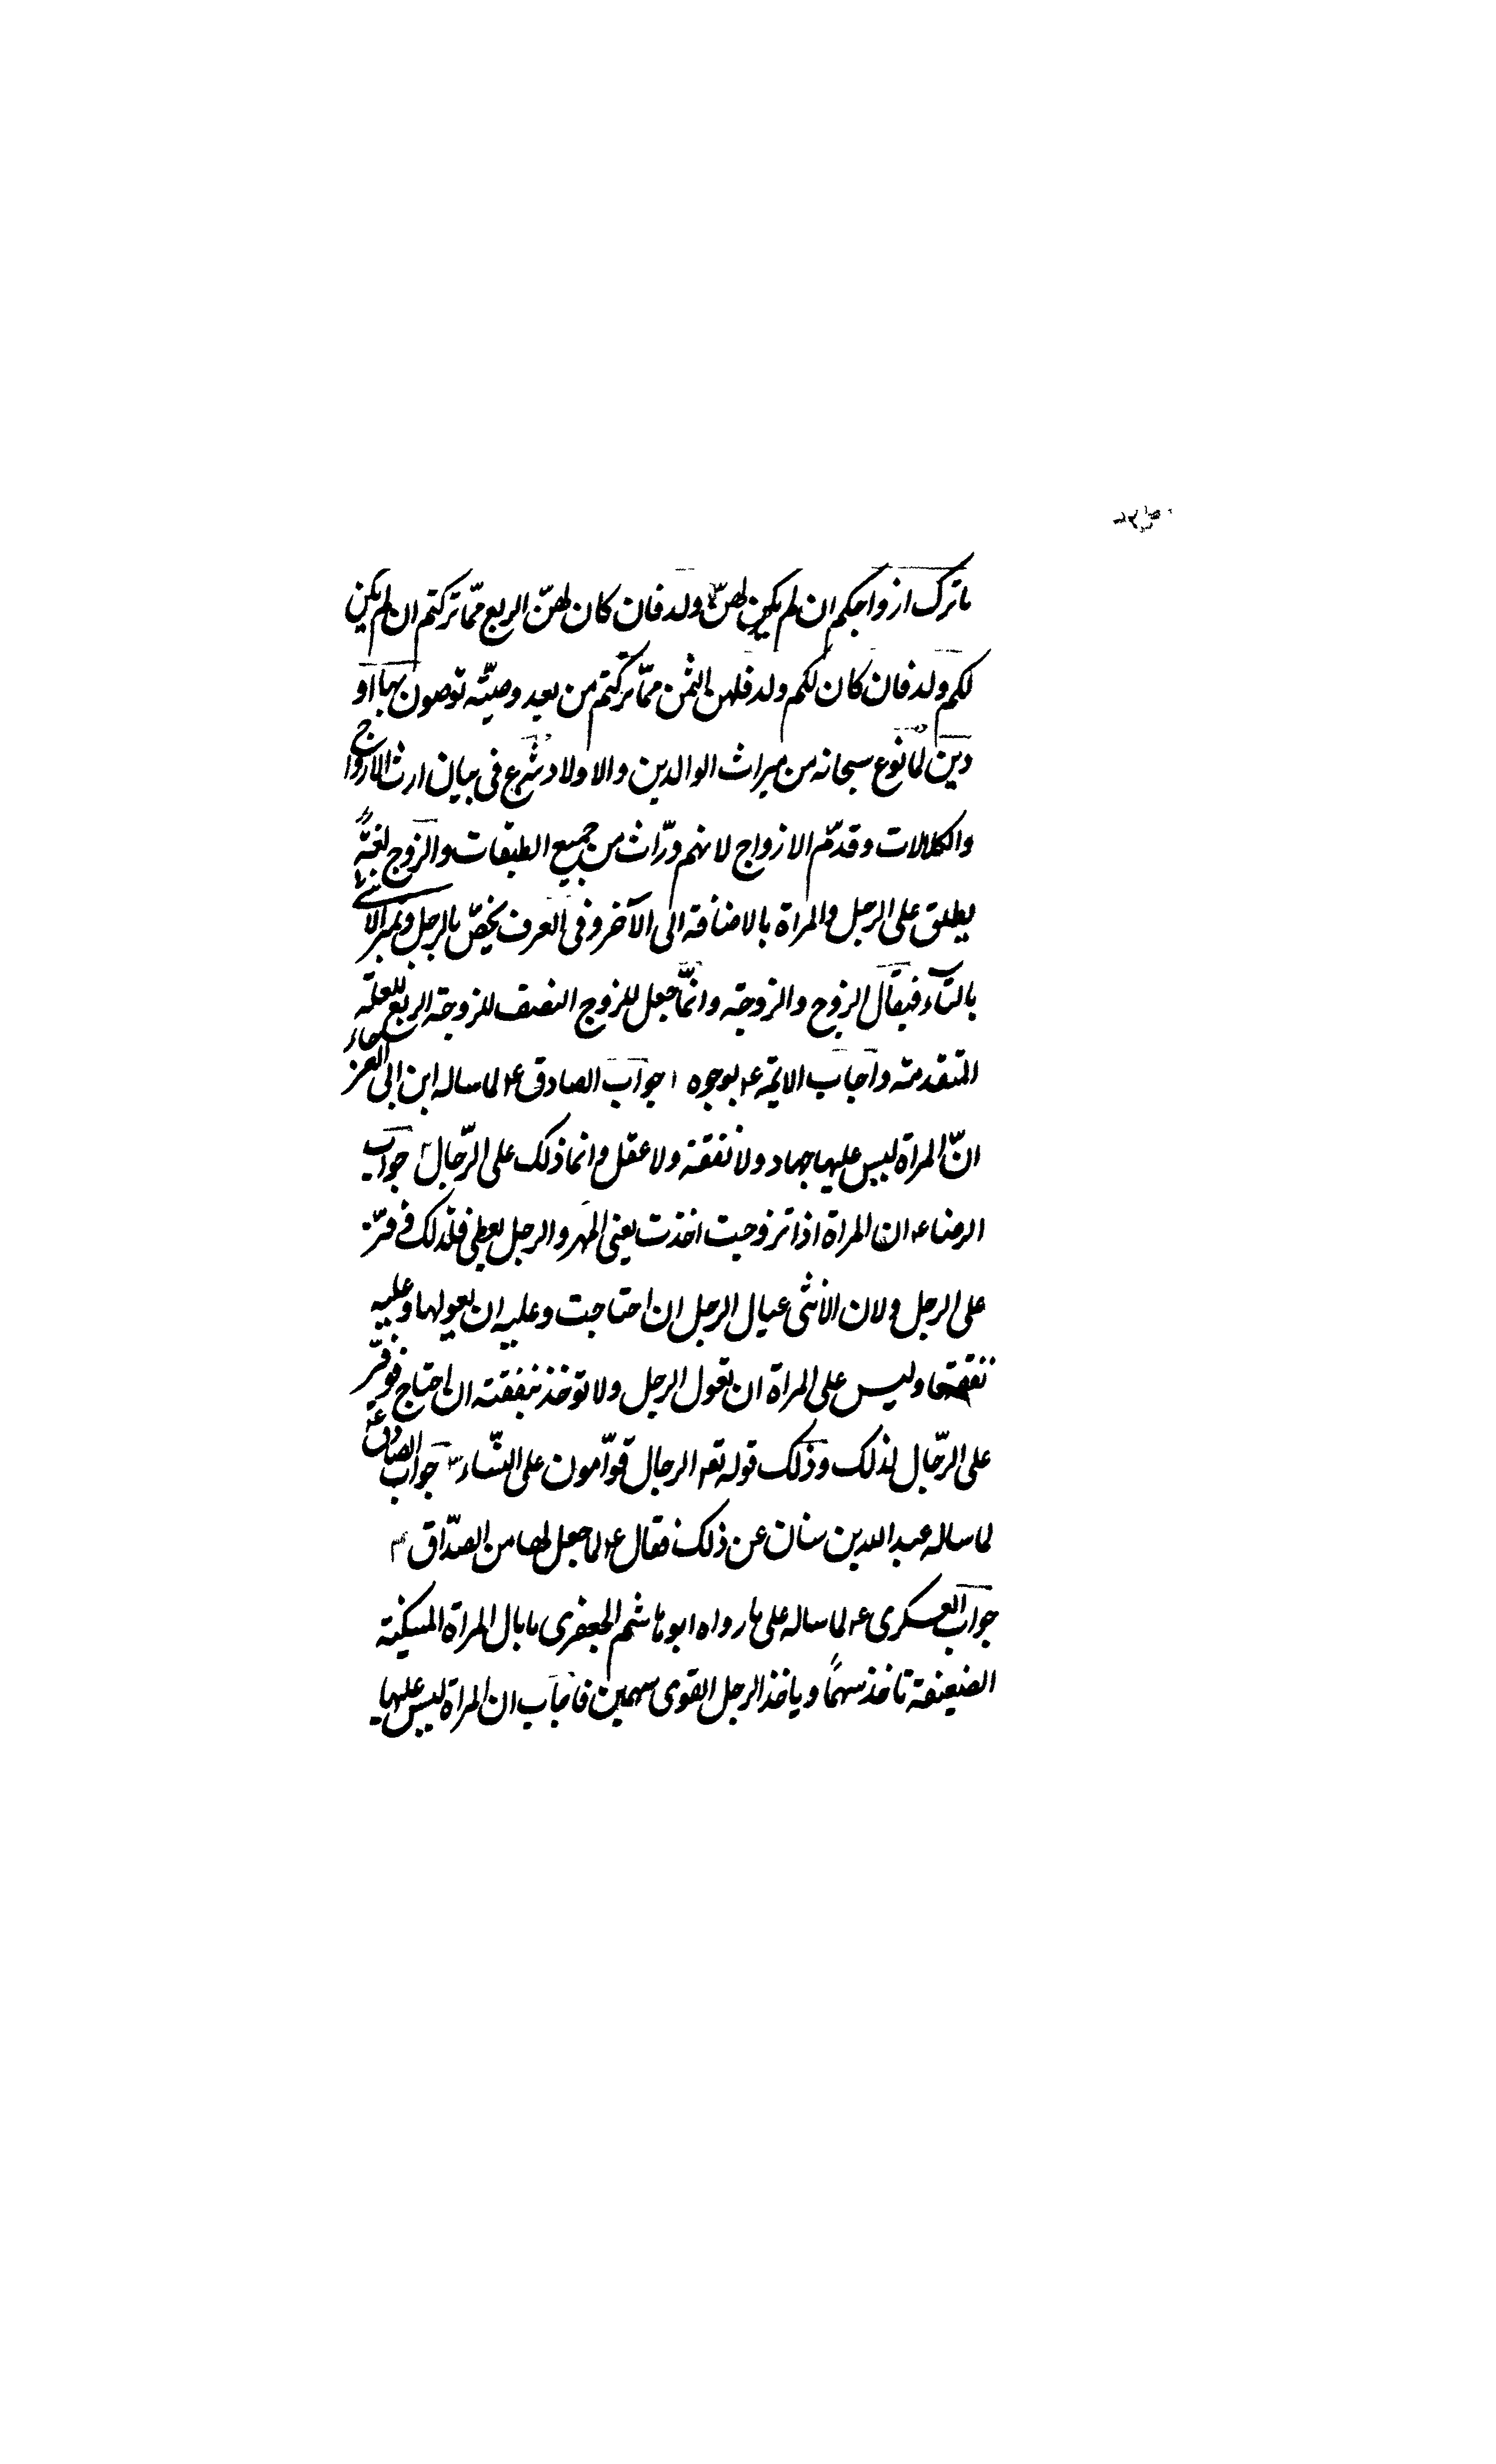 ما ترك ازواجكم ان لم يكن لهنّ ولد فان كان لهنّ الربع ممّا تركتم ان لم يكن
لكم ولد فان كان لكم ولد فلهن الثمن ممّا تركتم من بعد وصيّته توصون بها او
دين لما نوع سبحانه من ميراث الوالدين والاولاد شرع فى بيان ارث الازواج
والكلالات وقدّم الازواج لانهم ورّاث من جميع الطبقات والزوج لغةً
يطلق على الرجل والمراة بالاضافة الى الآخر وفى العرف يخصّ بالرجل ويميز الانثى
بالتآء فيقال الزوج والزوجة وانّما جعل للزوج النصف للزوجة الربع للعلّة
المتقدمة واجاب الائمة ع بوجوه ١ جواب الصادق ع لما ساله ابن ابى العوجاء
انّ المراة ليس عليها جهاد ولا نفقة ولا عقل وانما ذلك على الرّجال ٢ جواب
الرضا ع ان المراة اذا تزوجت اخذت يعنى المهر والرجل يعطى فلذلك وفّر
على الرجل ولان الأنثى عيال الرجل ان احتاجت وعليه ان يعولها وعليه
نفقتها وليس على المراة ان تعول الرجل ولا توخذ بنفقته ان احتاج فوفّر
على الرّجال لذلك وذلك قوله تع الرجال قوّامون على النسّاء ٣ جواب الصادق ع
لما ساله عبد الله بن سنان عن ذلك فقال ع لما جعل لها من الصدّاق ٤
جواب العسكرى ع لما ساله على ما رواه ابو هاشم الجعفرى ما بال المراة المسكينة
الضعيفة تاخذ سهمًا وياخذ الرجل القوى سهمين فاجاب ان المراة ليس عليها